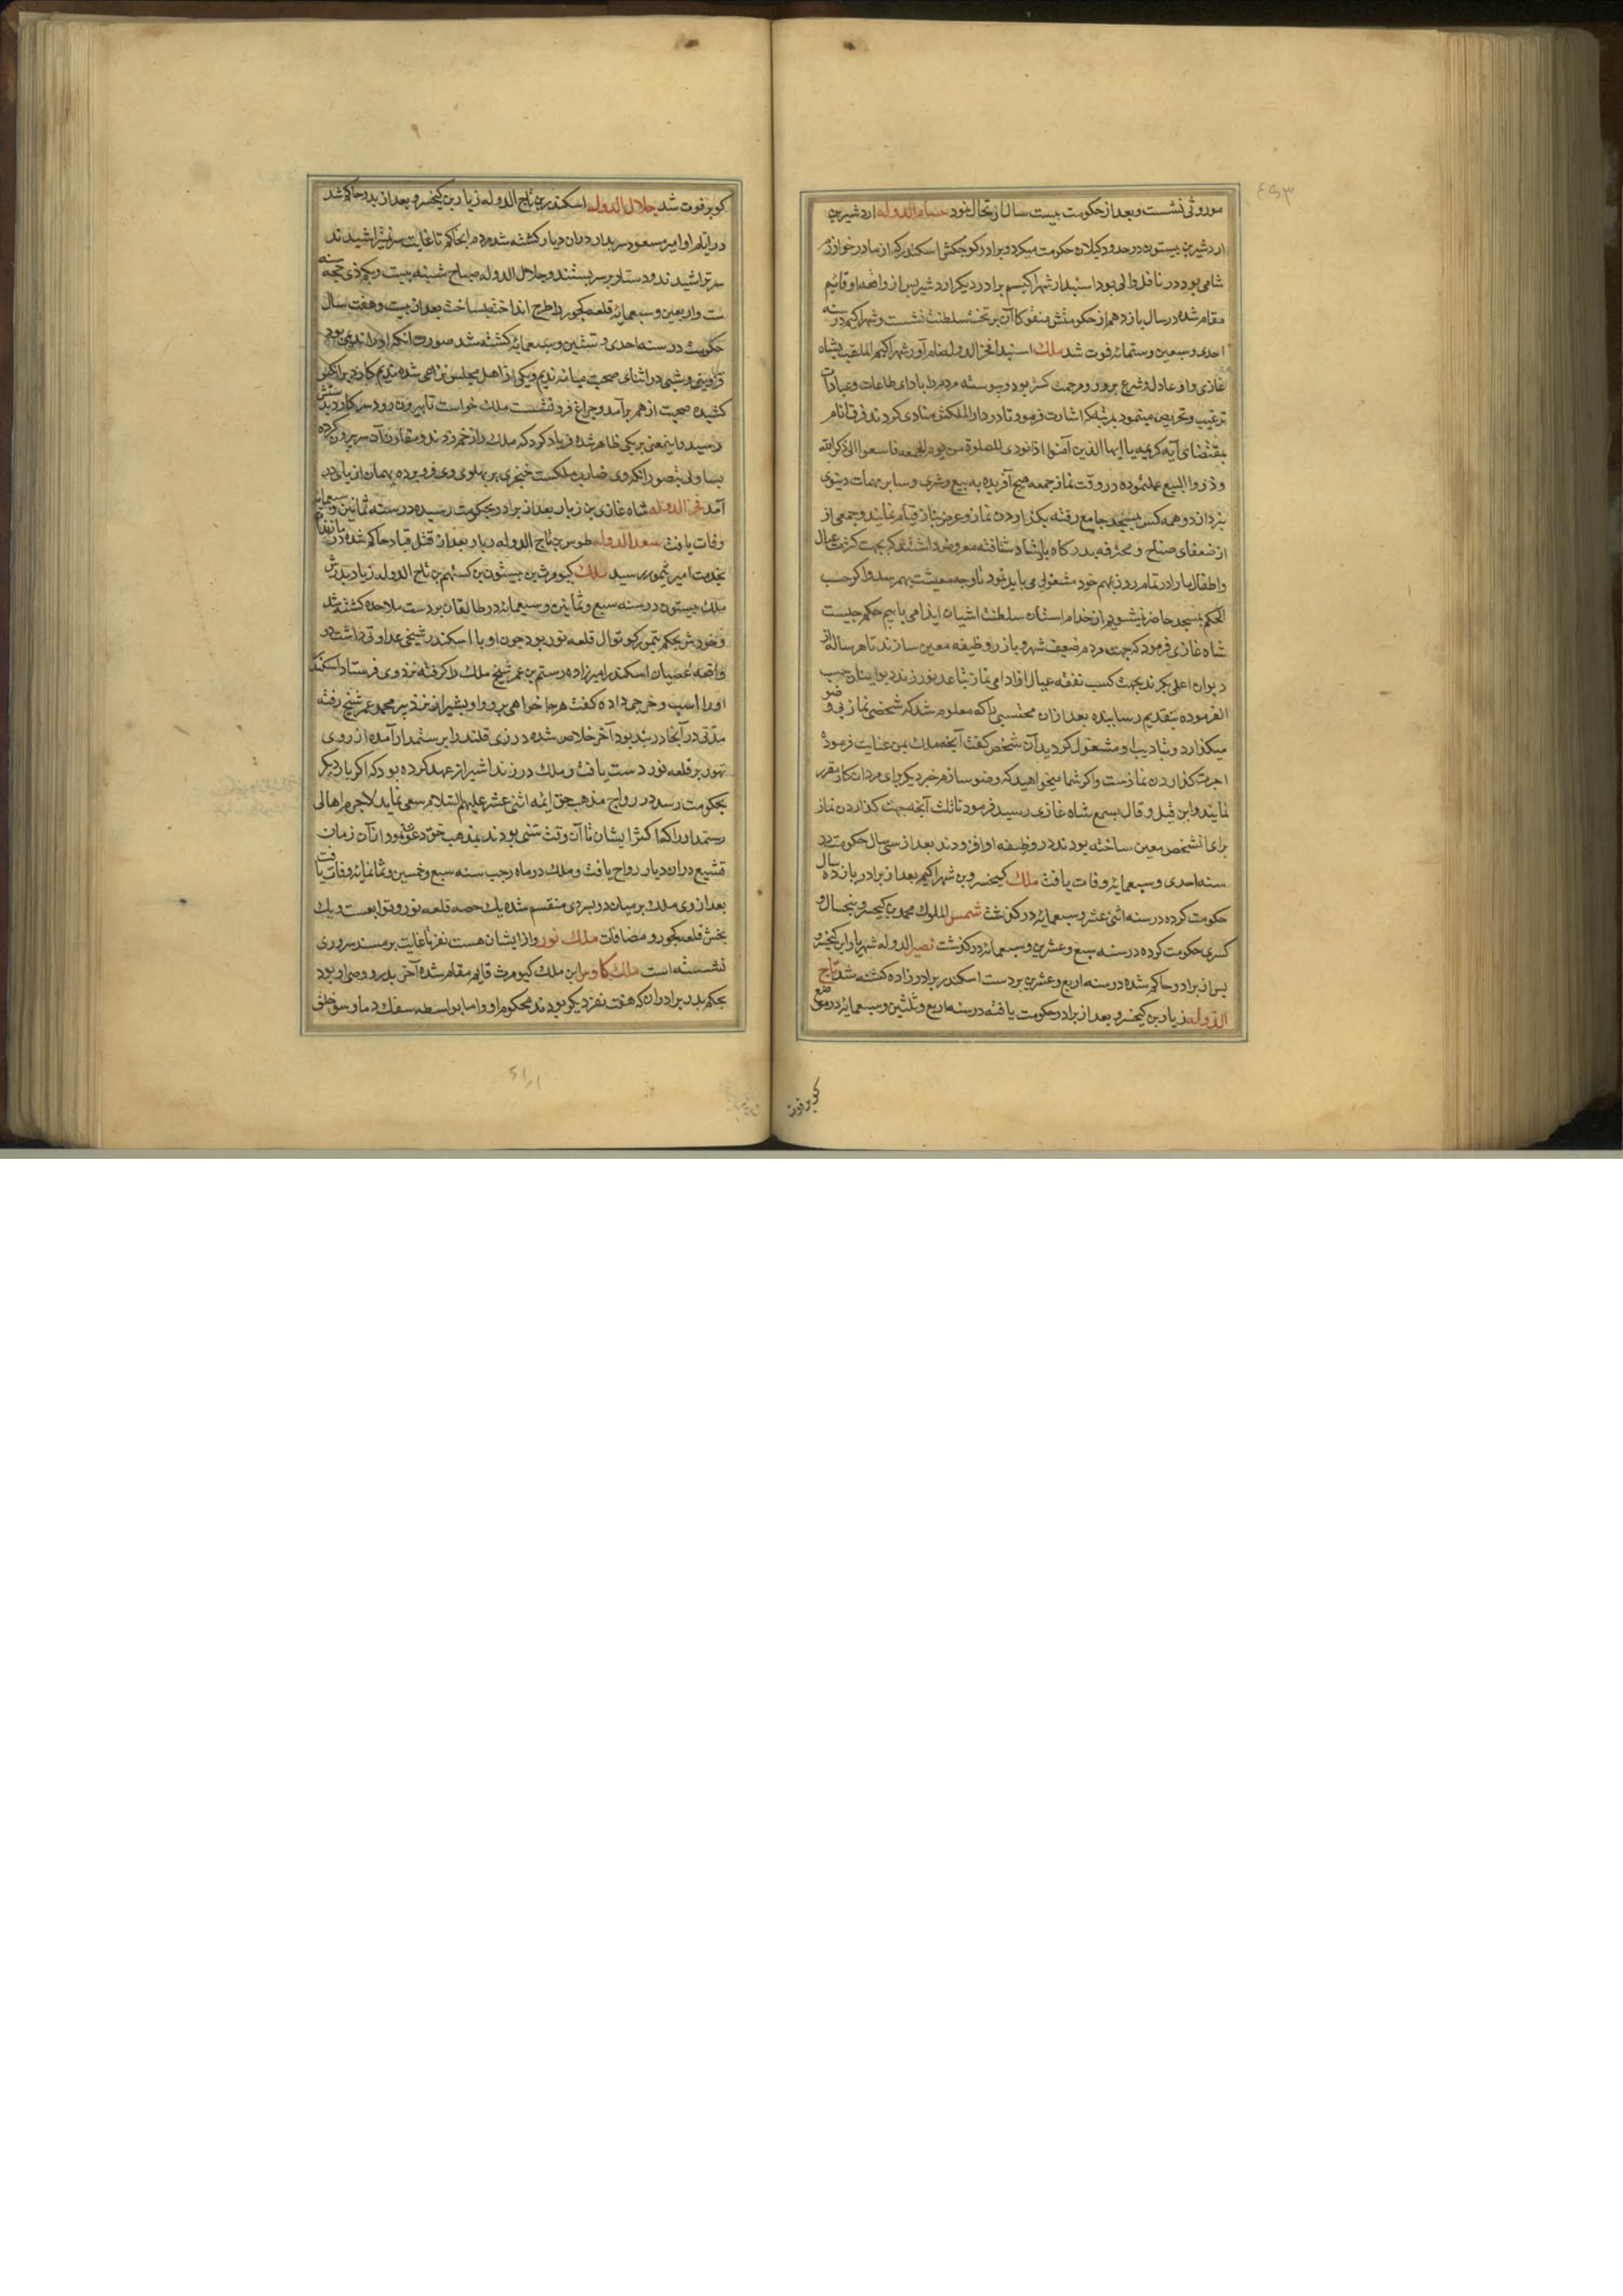 موروثی نشست و بعد از حکومت بیست سال ارتحال نمود حسام الدوله اردشیر بن
اردشیر بن بیستون در حدود کیلان حکومت میکرد و برادر کوچکش اسکندر که از مادر خوارزم
شاهی بود در ناقل والی بود اسپندار شهراکیم برادر دیکر اردشیر پس از واقعه او قائیم
مقام شده در سال یازدهم از حکومتش منقوکاآن بر تخت سلطنت نشست و شهراکیم در سنه
احدی و سبعین و ستمائه فوت شد ملک اسپندا فخر الدوله نام آور شهراکیم الملقب بشاه
غازی و او عادل و شرع پرور و مرحمت کستر بود و پیوسته مردم را بادای طاعات و عبادات
ترغیب و تحریص مینمود بمرتبه که اشارت فرمود تا در دار الملکش منادی کردند فرق انام
بمقتضای آیه کریمه یا ایها الذین آمنوا اذا نودی للصلوة من یوم الجمعه فاسعوا الی ذکر الله
و ذروا البیع عمل نموده در وقت نماز جمعه هیچ آفریده به بیع و شری و سایر مهمات دنیوی
نپردازد و همه کس بمسجد جامع رفته بکذاردن نماز و عرض نیاز قیام نمایند و جمعی از
از ضعفای صناح و محترفه بدرکاه پادشاه شتافته معروض داشتند که بجهت کثرت عیال
و اطفال ما را در تمام روز بمهم خود مشغولی می باید نمود تا وجه معیشت بهم رسد و اکر حسب
الحکم بمسجد حاضر نیشویم از خدام استان سلطنت اشیان ایذا می یابیم حکم چیست
شاه غازی فرمود که جهت مردم ضعیف شهر و بازار وظیفه معین سازند تا هر ساله از
دیوان اعلی بکیرند بجهت کسب نفقه عیال از ادای نماز تباعد نورزند دیوانیان حسب
الفرموده بتقدیم رسانیده بعد از ان محتسبی را که معلوم شد که شخصی نماز بی وضو
میکذارد و بتادیب او مشغول کردید آن شخص کفت آنچه ملک بمن عنایت فرموده
اجرت کذاردن نماز ست و اکر شما میخواهید که وضو سازم خبر دیکر برای مردان کار مقرر
نمایند و این قیل و قال بسمع شاه غازی رسید فرمود تا ثلث آنچه جهت کذاردن نماز
برای انشخص معین ساخته بودند در وظیفه او افزودند بعد از سی سال حکومت در
سنه احدی و سبعمائه وفات یافت ملک کیخسرو بن شهراکیم بعد از برادر یازده سال
حکومت کرده در سنه اثنی عشر و سبعمائه در کذشت شمس الملوک محمد بن کیخسرو پنجسال و
کسری حکومت کرده در سنه سبع و عشرین و سبعمائه درکذشت نصیر الدوله شهریار ابن کیخسرو
پس از برادر حاکم شده در سنه اربع و عشرین بر دست اسکندر برادرزاده کشته شد تاج
الدوله زیار بن کیخسرو بعد از برادر حکومت یافته در سنه اربع و ثلثین و سبعمائه در موضع
کویر فوت
کویر فوت شد جلال الدوله اسکندر بن تاج الدوله زیار بن کیخسرو بعد از پدر حاکم شد
در ایام او امیر مسعود سربدار در ان دیار کشته شد مردم انجا که تا غایت سر نمیتراشیدند
سر تراشیدند و دستار بر سر بستند و جلال الدوله صباح شنبه بیست و یکم ذی حجه سنه
ست و اربعین و سبعمائه قلعه کجور را طرح انداخته بساخت بعد از بیست و هفت سال
حکومت در سنه احدی و ستین و سبعمائه کشته شد صورت آنکه او را ندیمی بود
قزوینی و شبی در اثنای صحبت میانه ندیم و یکی از اهل مجلس نزاعی شده ندیم کارد بر انکس
کشیده صحبت از هم برآمد و چراغ فرو نشست ملک خواست تا بیرون رود سر کارد بدستش
رسید و اینمعنی بر یکی ظاهر شده فریاد کرد که ملک را زخم زدند و مقارن آن سر بیرون کرده
یساولی بتصور انکه وی ضارب ملکست خنجری بر پهلوی وی فرو برده بهمان از پای در
آمد فخر الدوله شاه غازی بن زیار بعد از برادر بحکومت رسیده در سنه ثمانین و سبعمائه
وفات یافت سعد الدوله طوس بن تاج الدوله زیار بعد از قتل قباد حاکم شده
بخدمت امیر تیمور رسید ملک کیومرث بن بیستون بن کستهم بن تاج الدوله زیاد پدرش
ملک بیستون در سنه سبع و ثمانین و سبعمائه در طالقان بر دست ملاحده کشته شد
و خودش بحکم تیمور کوتوال قلعه نور بود چون او با اسکندر شیخی عداوتی داشت در
واقعه عصیان اسکندر امیرزاده رستم بن عمر شیخ ملک را کرفته نزد وی فرستاد اسکندر
او را اسپ و خرجی داده کفت هر جا خواهی برو و او بشیراز نزد پیر محمد عمر شیخ رفته
مدتی در آنجا در بند بود آخر خلاص شده در زی قلندرا برستمدار آمده از روی
تهور بر قلعه نور دست یافت و ملک در زندا شیراز عهد کرده بود که اکر بار دیکر
بحکومت رسد در رواج مذهب حق ائمه اثنی عشر علیهم السلام سعی نماید لاجرم اهالی
رستمدار را که اکثر ایشان تا آن وقت سنی بودند بمذهب حق دعوت نمود از آن زمان
تشیع در ان دیار رواج یافت و ملک در ماه رجب سنه سبع و خمسین و ثمانمائه وفات یافت
بعد از وی ملک بر میان دو پسر وی منقسم شده یک حصه قلعه نور و توابعست و یک
بخش قلعه کجور و مضافات ملک نور و از ایشان هست نفر تا غایت بر مسند سروری
نشسته است ملک کاوس ابن ملک کیومرث قایم مقام شده آخر پدر و وصی او بود
بحکم پدر برادران که هفت نفر دیکر بودند محکوم او و اما بواسطه سفک دما و سو خلق